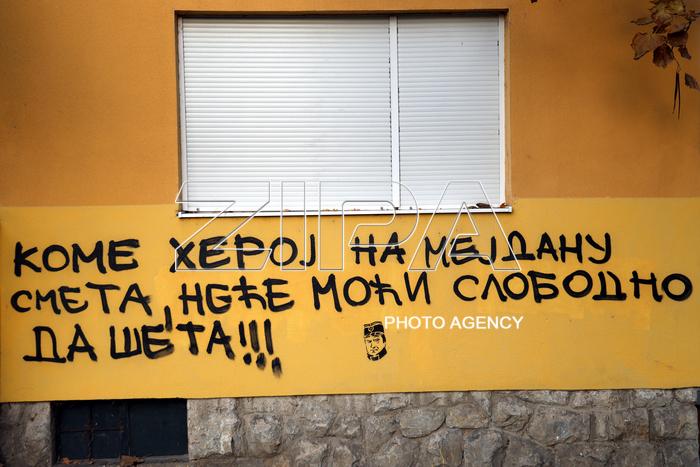 КОМЕ ХЕРОЈ НА МЕЈДАНУ
СМЕТА, НЕЋЕ МОЋИ СЛОБОДНО
ДА ШЕТА!!!
ZIPA
PHOTO AGENCY